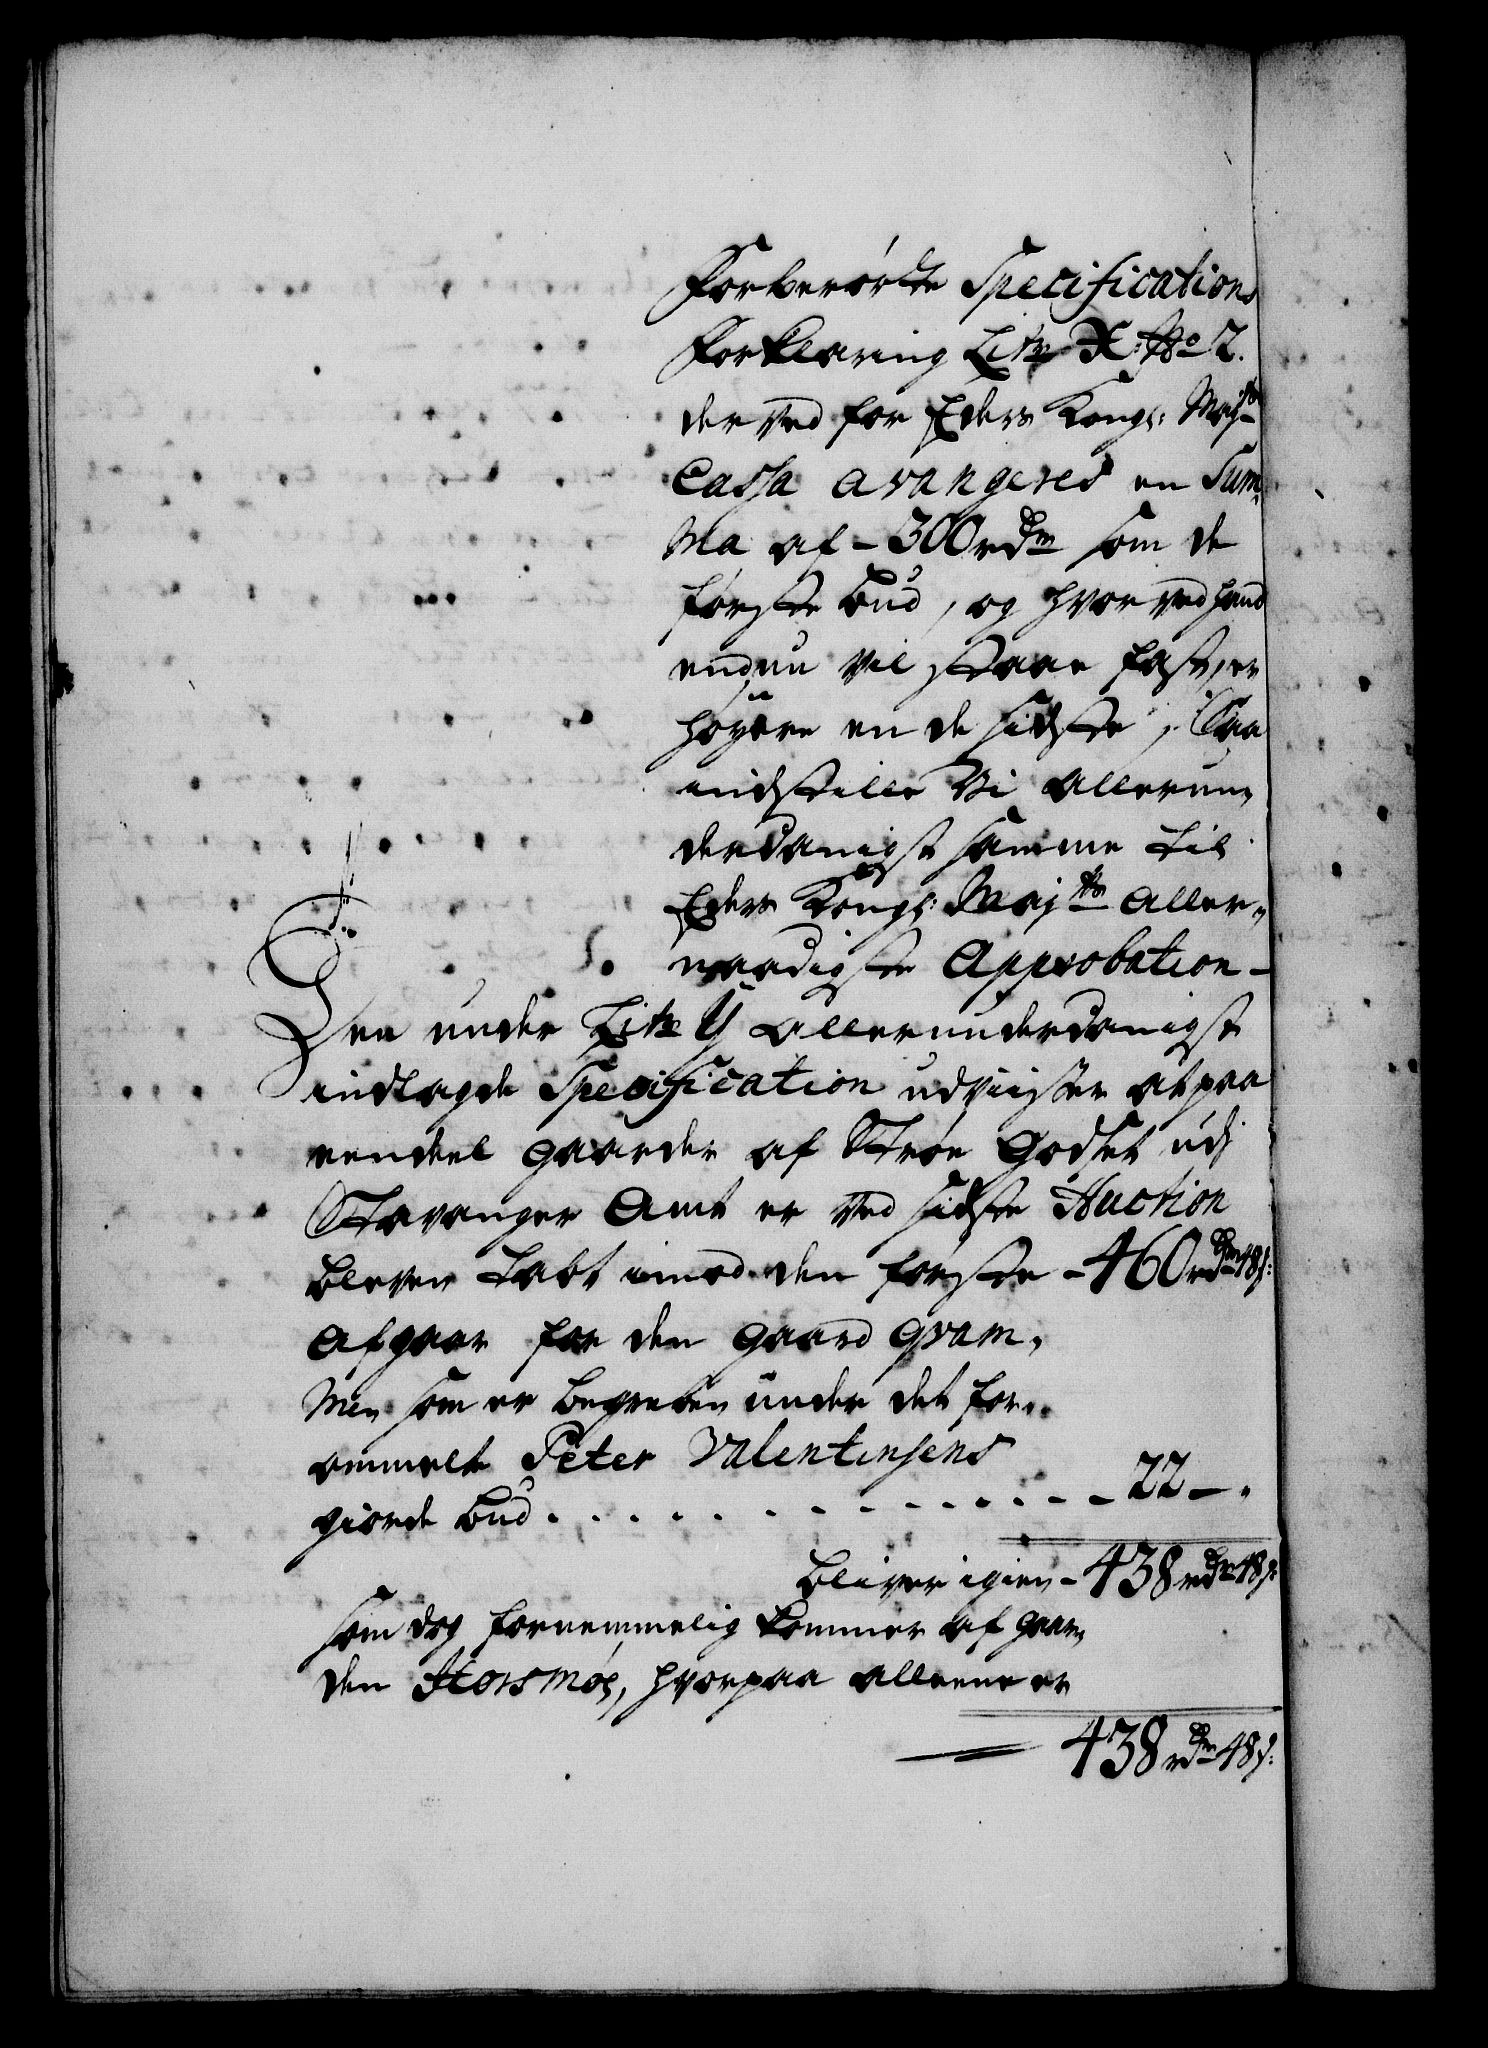 Forberørte Specifications
Forklaring Litr X: No 2.
derved for Eders Kongl: Majts
Cassa avangeres en Sum¬
ma af – 300 rdr som de
første bud, og hvorved hand
endnu vil staae fast, er
høyere en de sidste, Saa
indstille Vi allerun¬
derdanigst samme til
Eders Kongl: Majts aller¬
naadigste Approbation –
Den under Litr Y allerunderdanigst
indlagde Specification udviiser at paa
eendeel gaarder af Strøe Godset udj
Stavanger Amt er ved sidste Auction
bleven tabt imod den første – 460 rdr 48 s:
Afgaar for den gaard Qvam¬
men som er begreben under det for¬
ommelte Peter Valentinsens
giorde bud . . . . . . . . – 22 – "
bliver igien – 438 rdr 48 s:
som dog fornemmelig kommer af gaar¬
den Horsmøe, hvorpaa alleene er
438 rdr 48 s: